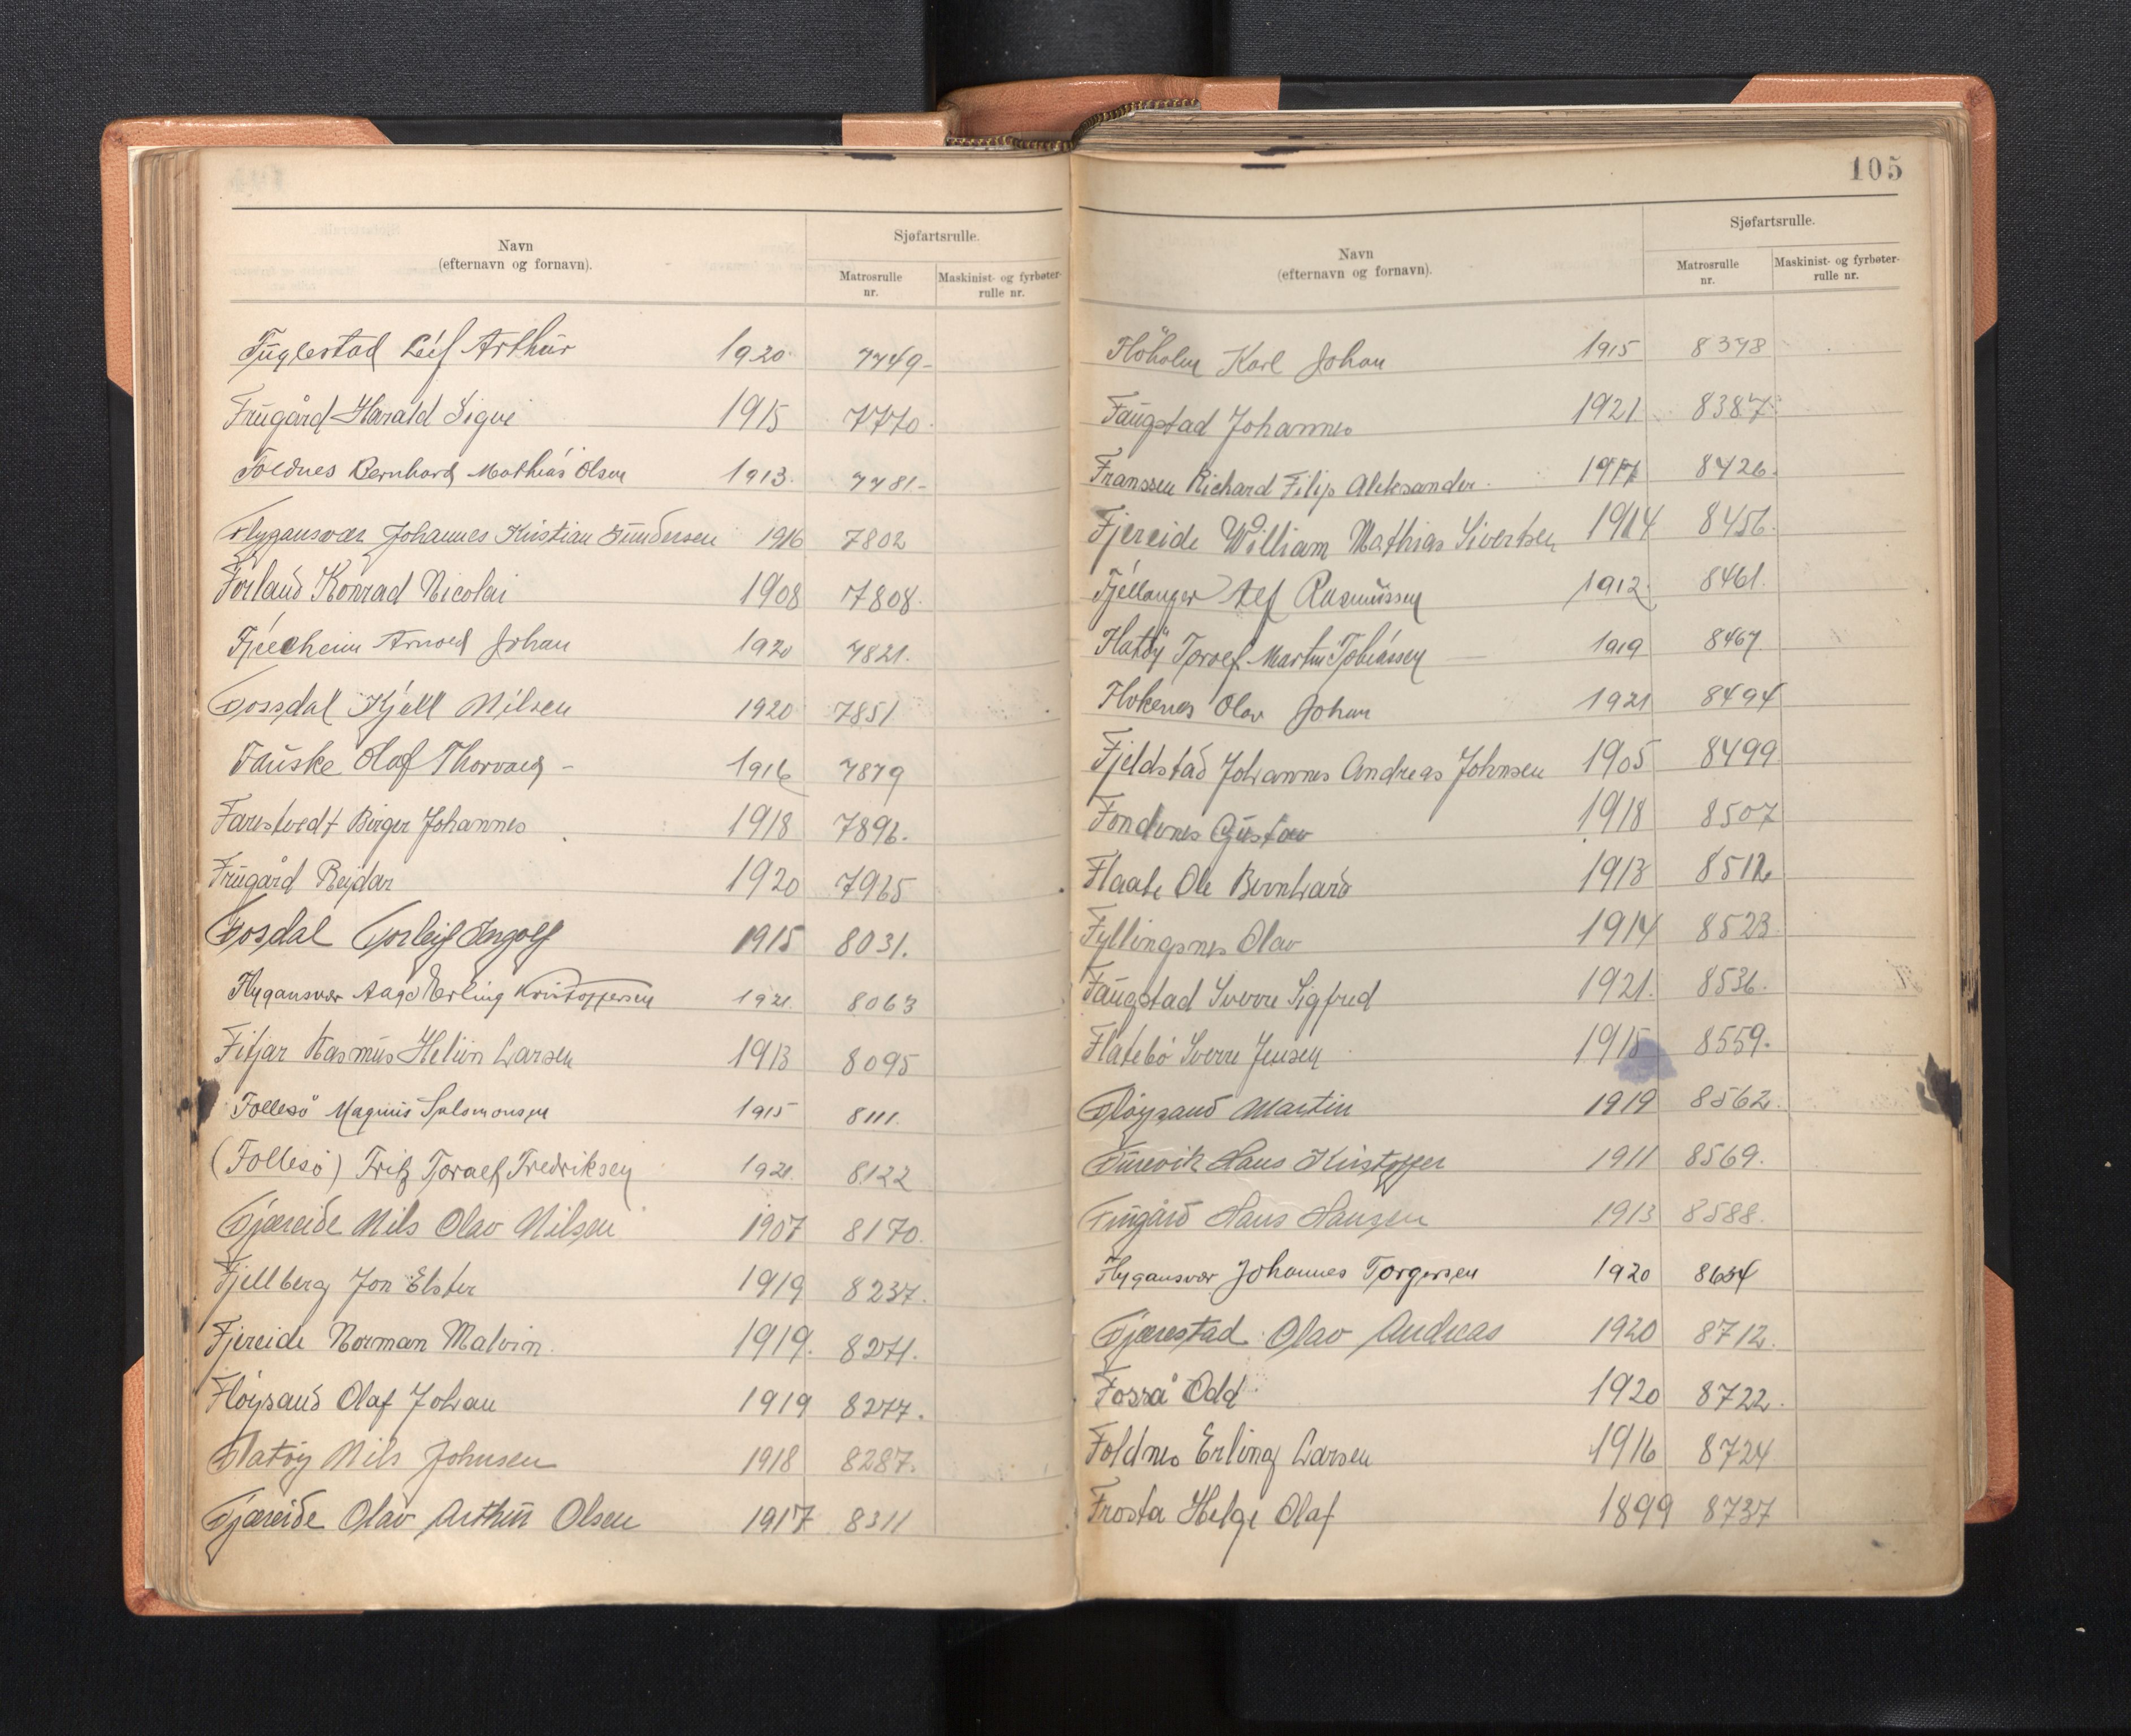 Navn
(efternavn og fornavn).
Sjøfartsrulle.
Matrosrulle
nr.
Maskinist- og fyrbøter-
rulle nr.
Fuglestad Leif Arthur 1920 7749-
Frugård Harald Sigve 1915 7770.
Foldnes Bernhard Mathias Olsen 1913. 7781.-
Flygansvær Johannes Kristian Gundersen 1916 7802
Førland Konrad Nicolai 1908 7808.
Arnold Johan 1920 7821.
Fossdal Kjell Nilsen 1920 7851
Fauske Olaf Thorvald - 1916 7879
Farestvedt Birger Johannes 1918 7896.
Frugård Reidar 1920 7965
Fosdal Torleif Ingolf 1915 8031.
Flygansvær Aage Erling Kristoffersen 1921. 8063
Fitjar Rasmus Larsen 1913 8095
Follesö Magnus Salomonsen 1915 8111.
(Follesö) Fritz Toralf Fredriksen 1921. 8122
Fjæreide Nils Olav Nilsen 1907 8170.
Fjellberg Jon Elster 1919 8237.
Fjereide Norman Malvin. 1919. 8271.
Fløysand Olaf Johan 1919 8277.
Flatøy Nils Johnsen 1918 8287.
Fjæreide Olav Arthur Olsen 1917 8311
105
Navn
(efternavn og fornavn).
Sjøfartsrulle.
Matrosrulle
nr.
Maskinist- og fyrbøter-
rulle nr.
Flöholm Karl Johan 1915 8378
Faugstad Johannes 1921. 8387.
Franssen Richard Filip Aleksander. 8426.
Fjereide William Mathias Sivertsen 1914 8456.
Fjellanger Alf Rasmussen 1912. 8461.
Flatöy Torolf Martin Tobiassen 1919 8467
Flokenes Olav Johan 1921 8494
Fjeldstad Johannes Andreas Johnsen 1905 8499
Fondenes Gustav 1918 8507
Flaate Ole Bernhard 1913 8512
Fyllingsnes Olav 1914 8523.
Faugstad Sverre Sigfred 1921. 8536.
Flatebö Sverre Jensen 1915 8559.
Fløysand Martin 1919 8562.
Furevik Hans Kristoffer 1911 8569.
Frugård Hans Hansen 1913 8588.
Flygansvær Johannes Torgersen 1920 8634
Fjærestad Olav Andreas 1920 8712.
Fosså Odd 1920 8722.
Foldnes Erling Larsen 1916 8724
Frosta Helge Olaf 1899 8737